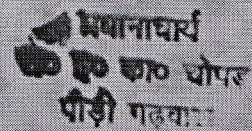 प्रधानाचार्य
रा० इ० का० चोपड
पौड़ी गढ़वाल